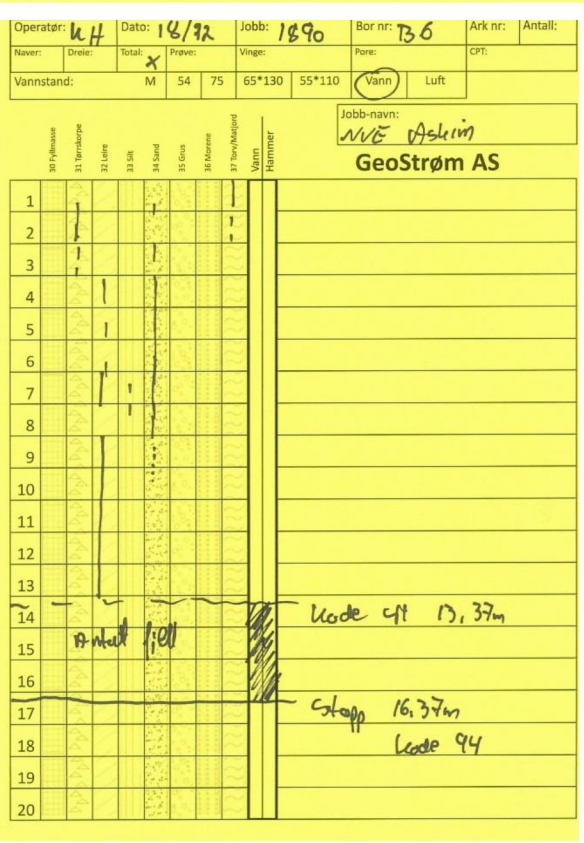 Operatør: KH Dato: 18/12 Jobb: 1890 Bor nr: B6 Ark nr: Antall:
Naver: Dreie: Total: x Prøve: Vinge: Pore: CPT:
Vannstand: M 54 75 65*130 55*110 Vann Luft
Jobb-navn:
NVE Askim
GeoStrøm AS
30 Fyllmasse
31 Tørrskorpe
32 Leire
33 Silt
34 Sand
35 Grus
36 Morene
37 Torv/Matjord
Vann
Hammer
1
2
3
4
5
6
7
8
9
10
11
12
13
14 Kode 13,37m
15 Antatt fjell
16
17 Stopp 16,37m
18 Kode 94
19
20